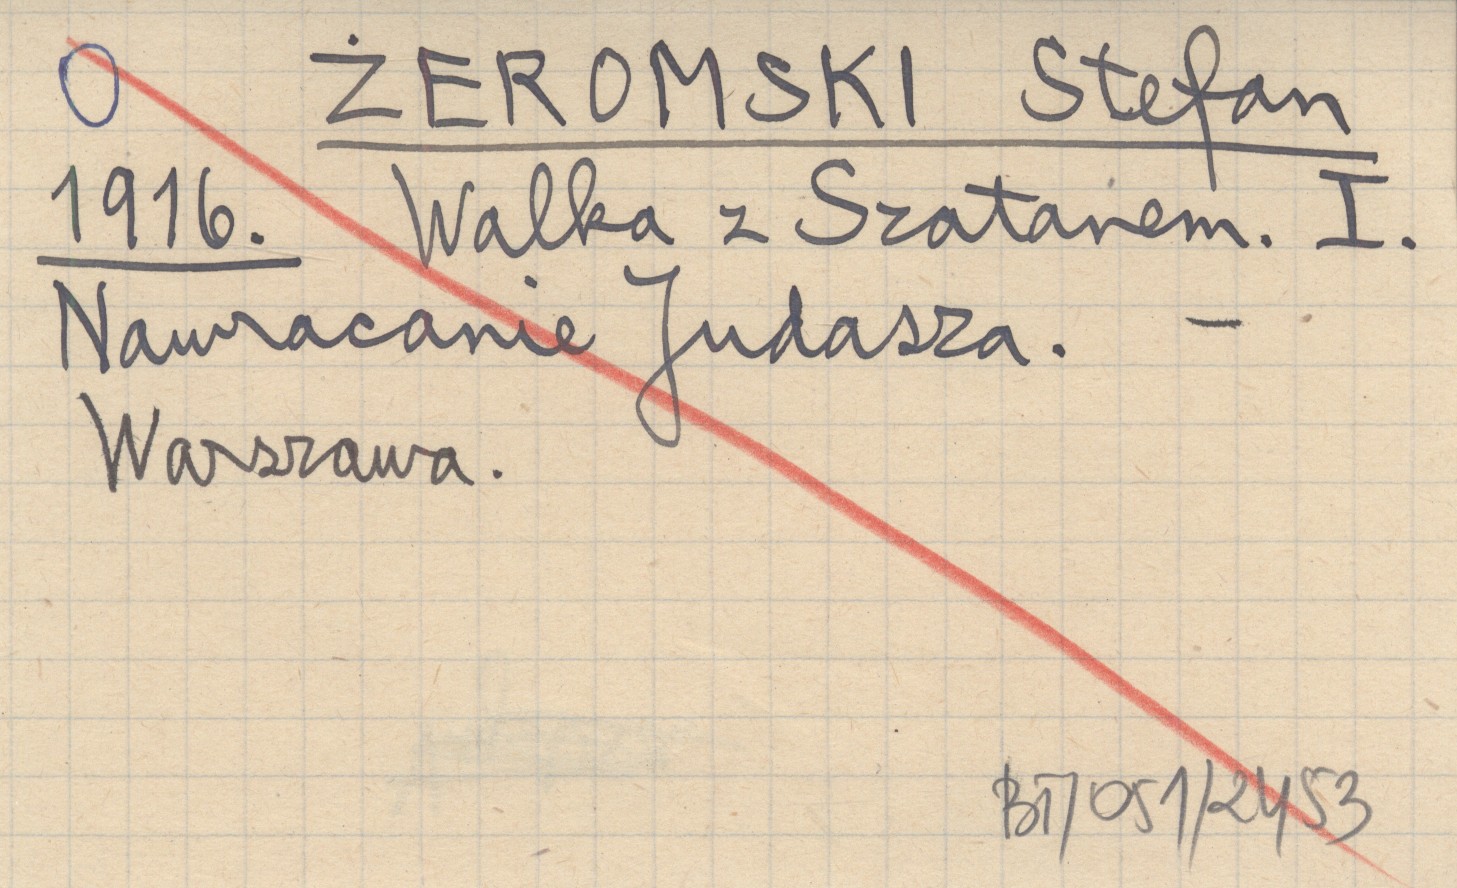 O ŻEROMSKI Stefan
1916. Walka z Szatanem. I.
Nawracanie Judasza. –
Warszawa.
BT/051/2453